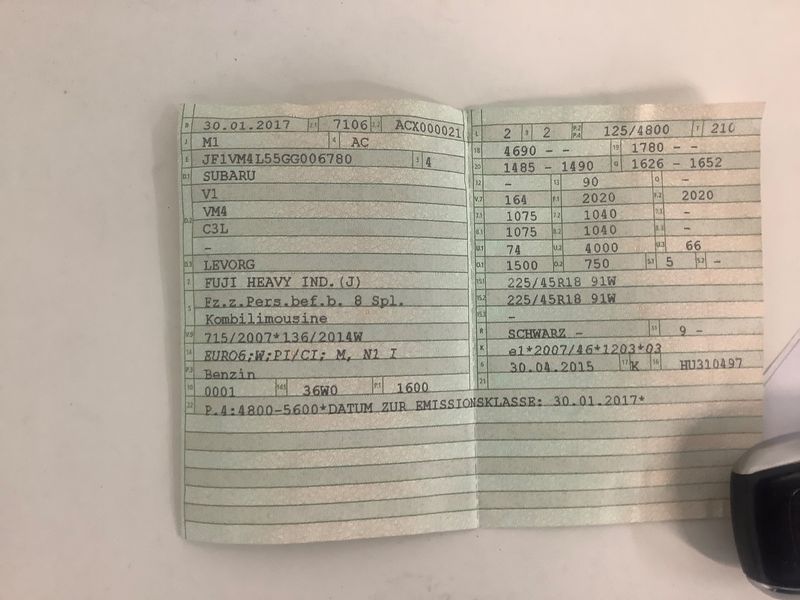 B 30.01.2017 2.1 7106 2.2 ACX000021
J M1 4 AC
E JF1VM4L55GG006780 3 4
D.1 SUBARU
V1
D.2 VM4
C3L
-
D.3 LEVORG
2 FUJI HEAVY IND.(J)
5 Fz.z.Pers.bef.b. 8 Spl.
Kombilimousine
V.9 715/2007*136/2014W
14 EURO6;W;PI/CI; M, N1 I
P.3 Benzin
10 0001 14.1 36W0 P.1 1600
22 P.4:4800-5600*DATUM ZUR EMISSIONSKLASSE: 30.01.2017*
L 2 9 2 P.2 P.4 125/4800 T 210
18 4690 - - 19 1780 - -
20 1485 - 1490 G 1626 - 1652
12 - 13 90 Q -
V.7 164 F.1 2020 F.2 2020
7.1 1075 7.2 1040 7.3 -
8.1 1075 8.2 1040 8.3 -
U.1 74 U.2 4000 U.3 66
O.1 1500 O.2 750 S.1 5 S.2 -
15.1 225/45R18 91W
15.2 225/45R18 91W
15.3 -
R SCHWARZ - 11 9 -
K e1*2007/46*1203*03
6 30.04.2015 17 K 16 HU310497
21